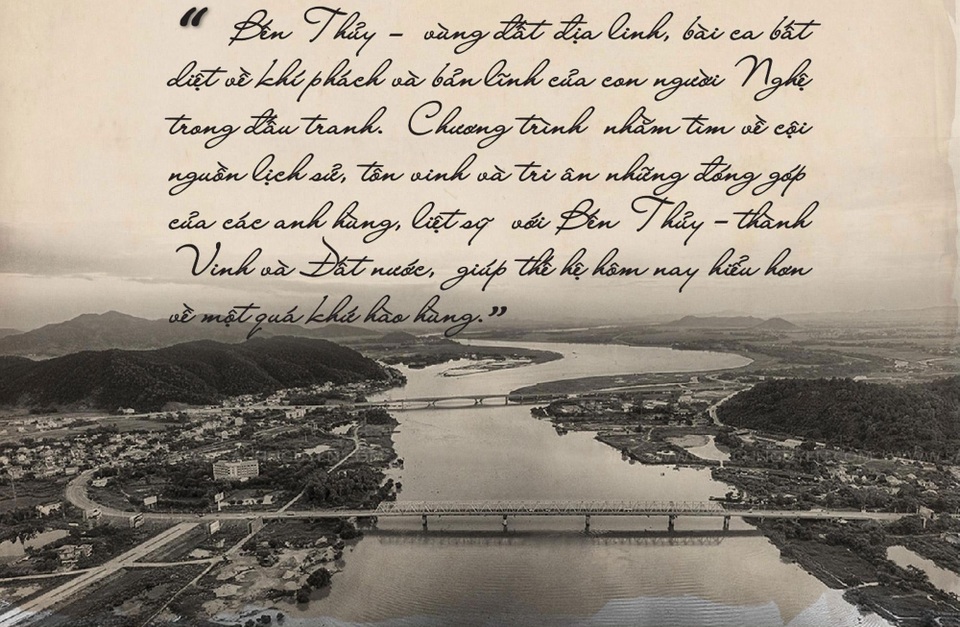 “ Bến Thủy – vùng đất địa linh, bài ca bất
diệt về khí phách và bản lĩnh của con người Nghệ
trong đấu tranh. Chương trình nhằm tìm về cội
nguồn lịch sử, tôn vinh và tri ân những đóng góp
của các anh hùng, liệt sỹ với Bến Thủy – thành
Vinh và Đất nước, giúp thế hệ hôm nay hiểu hơn
về một quá khứ hào hùng.”